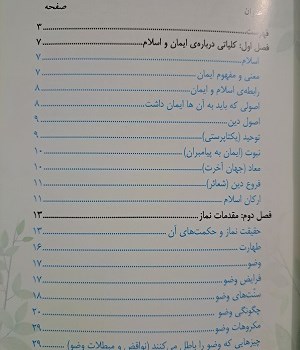 صفحه
فهرست ۳
فصل اول: کلیاتی درباره‌ی ایمان و اسلام ۷
اسلام ۷
معنی و مفهوم ایمان ۷
رابطه‌ی اسلام و ایمان ۸
اصولی که باید به آن ها ایمان داشت ۸
اصول دین ۹
توحید (یکتاپرستی) ۹
نبوت (ایمان به پیامبران) ۱۰
معاد (جهان آخرت) ۱۰
فروع دین (شعائر) ۱۱
ارکان اسلام ۱۱
فصل دوم: مقدمات نماز ۱۳
حقیقت نماز و حکمت‌های آن ۱۳
طهارت ۱۶
وضو ۱۷
فرایض وضو ۱۷
سنّت‌های وضو ۱۸
چگونگی وضو ۲۰
مکروهات وضو ۲۹
چیزهایی که وضو را باطل می‌کنند (نواقض و مبطلات وضو) ۲۹